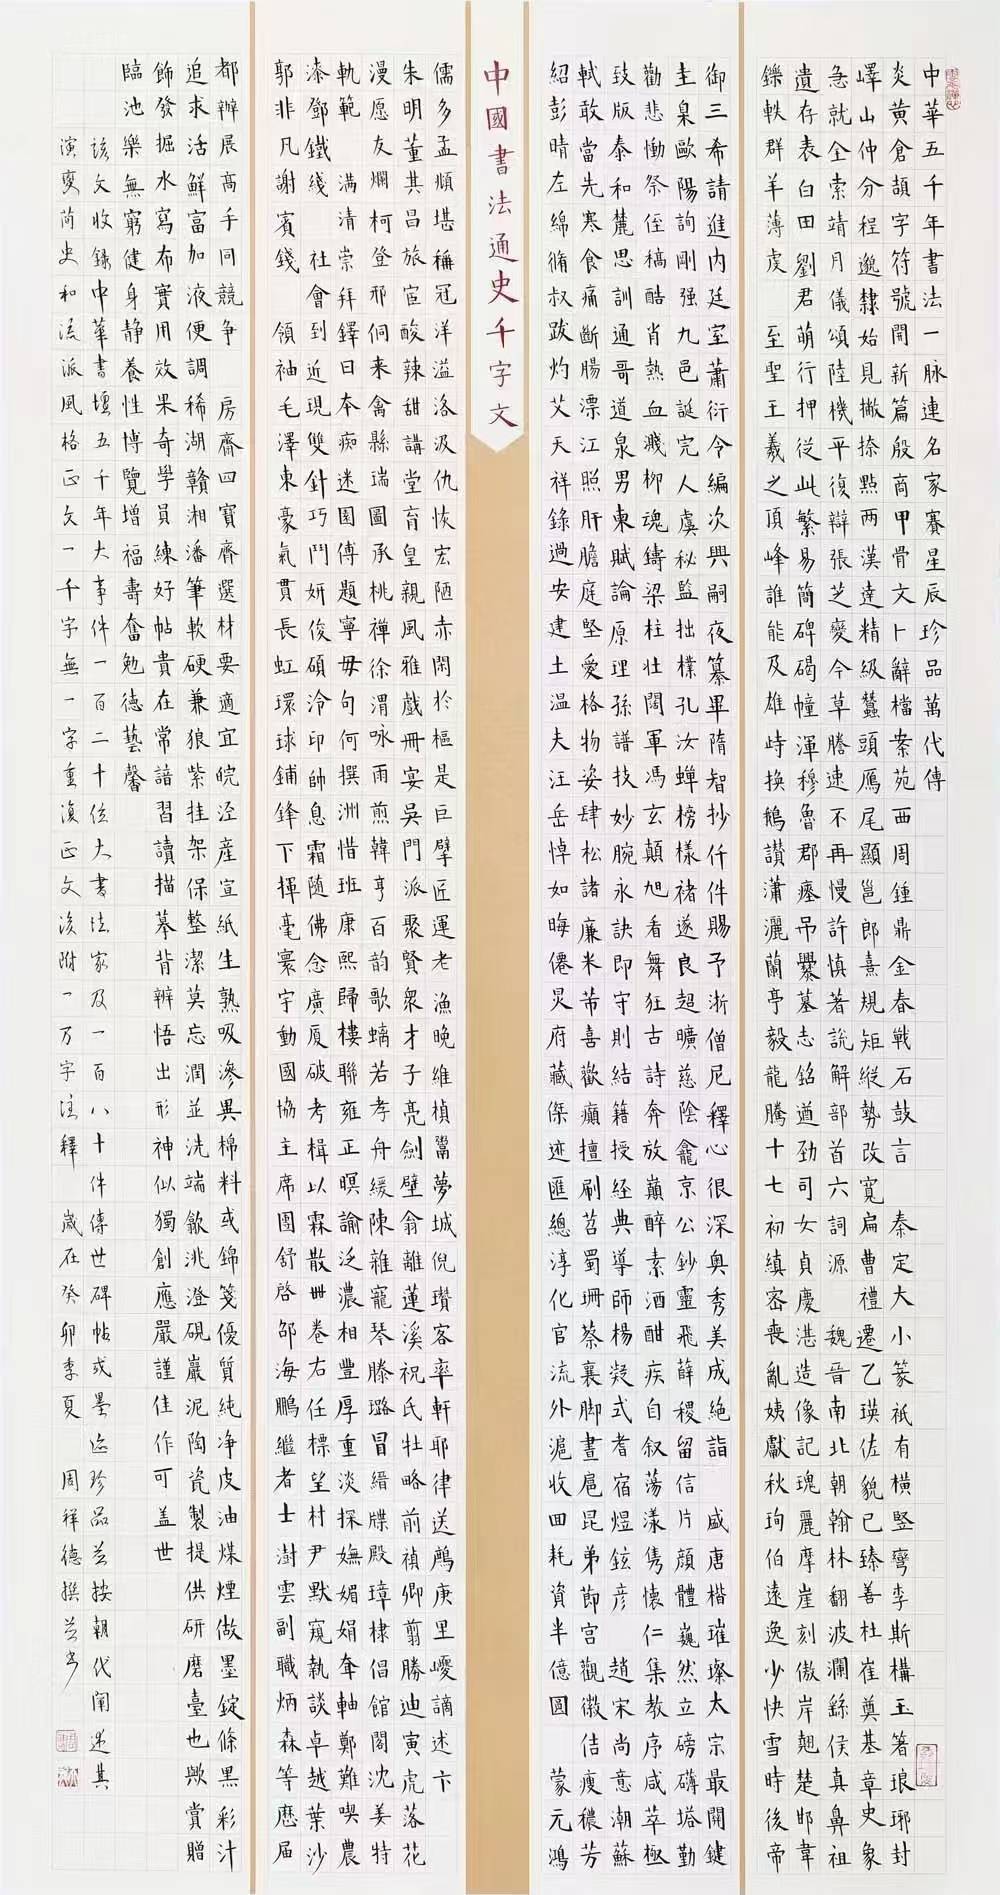 中華五千年書法一脈連名家賽星辰珍品萬代傳
炎黃倉頡字符號開新篇殷商甲骨文卜辭檔案苑西周鍾鼎金春戰石鼓言秦定大小篆祇有橫豎彎李斯構玉箸琅琊封
嶧山仲分程邈隸始見撇捺點兩漢達精級蠶頭鴈尾顯邕郎熹規矩縱勢改寬扁曹禮遷乙瑛佐貌已臻善杜崔奠基章史象
急就全索靖月儀頌陸機平復辯張芝變今草騰速不再慢許慎著說解部首六詞源魏晉南北朝翰林翻波瀾繇侯真鼻祖
遺存表白田劉君萌行押從此繁易簡碑碣幢渾穆魯郡瘞吊爨墓志銘遒勁司女貞慶湛造像記瑰麗摩崖刻傲岸翹楚邯韋
鑠軼群羊薄虔至聖王羲之頂峰誰能及雄峙換鵝讚瀟灑蘭亭毅龍騰十七初縝密喪亂姨獻秋珣伯遠逸少快雪時後帝
御三希請進內廷室蕭衍令編次興嗣夜纂畢隋智抄仟件賜予浙僧尼釋心很深奧秀美成絕詣盛唐楷璀璨太宗最開鍵
圭臬歐陽詢剛强九邑誕完人虞秘監拙樸孔汝蟬榜樣褚遂良超曠慈陰龕京公鈔靈飛薛稷留信片顏體巍然立磅礴塔勤
勸悲慟祭侄稿酷肖熱血濺柳魂鑄梁柱壯闊軍馮玄顛旭看舞狂古詩奔放巔醉素酒酣疾自叙蕩漾雋懷仁集教序咸萃極
致版泰和麓思訓通哥道泉男東賦論原理孫譜技妙腕永訣即守則結籍授經典導師楊凝式耆宿煜鉉彥趙宋尚意潮蘇
軾敢當先寒食痛斷腸漂江照肝膽庭堅愛格物姿肆松諸廉米芾喜歡癲擅刷苕蜀珊蔡襄脚晝扈昆弟節宮觀徽佶瘦穠芳
紹彭晴左綿脩叔跋灼艾天祥錄過安建土溫夫汪岳悼如晦僊炅府藏傑迹匯總淳化官流外滬收回耗資半億圓蒙元鴻
中國書法通史千字文
儒多孟頫堪稱冠洋溢洛汲仇恢宏陋赤閑於樞是巨擘匠運老漁晚維楨鬻夢城倪瓚客率軒耶律送鷹庚里巎謫述卞
朱明董其昌旅宦酸辣甜講堂育皇親風雅戲冊宴吳門派聚賢衆才子亮劍壁翁離蓮溪祝氏牡略前禎卿翦勝迪寅虎落花
漫愿友爛柯登邢侗来禽縣瑞圖承桃禪徐渭咏雨煎韓亨百韵歌螭若孝舟緩陳雜寵琴滕璐冒縉牒殿璋棣倡館閣沈姜特
軌範滿清崇拜鐸日本痴迷國傅題寧毋句何撰洲惜班康熙歸樓聯雍正暝諭泛濃相豐厚重淡探嫵媚娟奪軸鄭難喫農
漆鄧鐵綫社會到近現雙針巧鬥妍俊碩泠印帥息霜随佛念廣厦破考楫以霖散卌卷右任標望村尹默窺執談卓越葉沙
郭非凡謝賓錢領袖毛澤東豪氣貫長虹環球鋪鋒下揮毫寰宇動國協主席團舒啓邵海鵬繼者士澍雲副職炳森等歷届
都辦展高手同競争房齋四寶齊選材要適宜皖涇産宣紙生熟吸滲異棉料或錦箋優質純净皮油煤煙做墨錠條黑彩汁
追求活鮮富加液便調稀湖贛湘潘筆軟硬兼狼紫挂架保整潔莫忘潤並洗端歙洮澄硯巖泥陶瓷製提供研磨臺也歟賞贈
飾發掘水寫布實用效果奇學員練好帖貴在常諳習讀描摹背辨悟出形神似獨創應嚴謹佳作可盖世
臨池樂無窮健身静養性博覽增福壽奮勉德藝馨
該文收錄中華書壇五千年大事件一百二十位大書法家及一百八十件傳世碑帖或墨迹珍品并按朝代闡述其
演變简史和流派風格正文一千字無一字重復正文後附一万字注釋歲在癸卯季夏周祥德撰并書